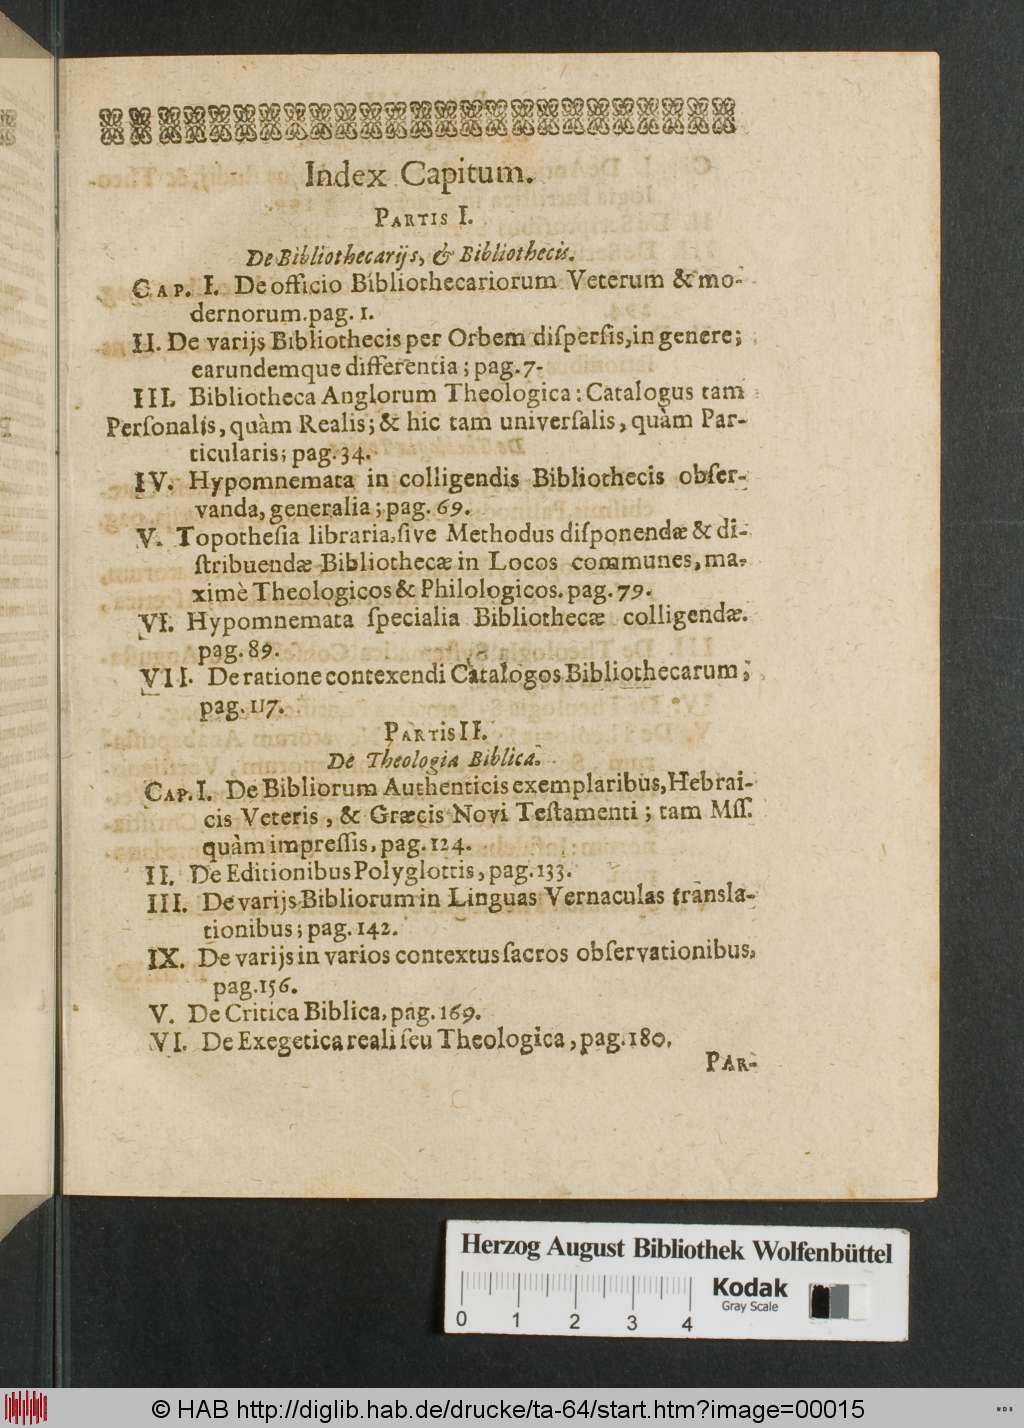 Index Capitum.
PARTIS I.
De Bibliothecarijs, & Bibliothecis.
CAP. I. De officio Bibliothecariorum Veterum & mo-
dernorum. pag. 1.
II. De varijs Bibliothecis per Orbem diſperſis, in genere;
earundemque differentia; pag. 7.
III. Bibliotheca Anglorum Theologica: Catalogus tam
Perſonalis, quàm Realis; & hic tam univerſalis, quàm Par-
ticularis; pag. 34.
IV. Hypomnemata in colligendis Bibliothecis obſer-
vanda, generalia; pag. 69.
V. Topotheſia libraria, ſive Methodus diſponendæ & di-
ſtribuendæ Bibliothecæ in Locos communes, ma-
ximè Theologicos & Philologicos. pag. 79.
VI. Hypomnemata ſpecialia Bibliothecæ colligendæ.
pag. 89.
VII. De ratione contexendi Catalogos Bibliothecarum;
pag. 117.
PARTIS II.
De Theologia Biblica.
CAP. I. De Bibliorum Authenticis exemplaribus, Hebrai-
cis Veteris, & Græcis Novi Teſtamenti; tam Mſſ.
quàm impreſſis, pag. 124.
II. De Editionibus Polyglottis, pag. 133.
III. De varijs Bibliorum in Linguas Vernaculas transla-
tionibus; pag. 142.
IX. De varijs in varios contextus ſacros obſervationibus,
pag. 156.
V. De Critica Biblica, pag. 169.
VI. De Exegetica reali ſeu Theologica, pag. 180.
PAR-
Herzog August Bibliothek Wolfenbüttel
Kodak
Gray Scale
0 1 2 3 4
© HAB http://diglib.hab.de/drucke/ta-64/start.htm?image=00015